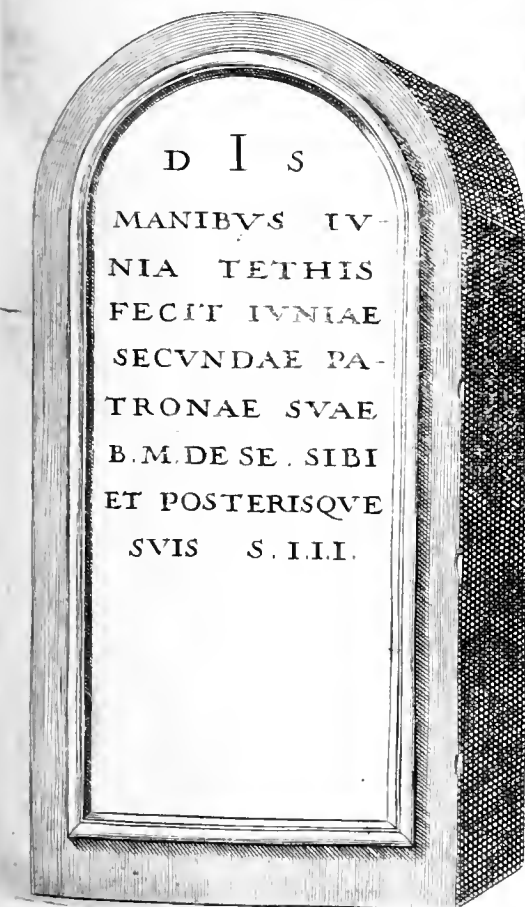 D I S
MANIBVS IV-
NIA TETHIS
FECIT IVNIAE
SECVNDAE PA-
TRONAE SVAE
B.M.DE SE. SIBI
ET POSTERISQVE
SVIS S.I.I.I.